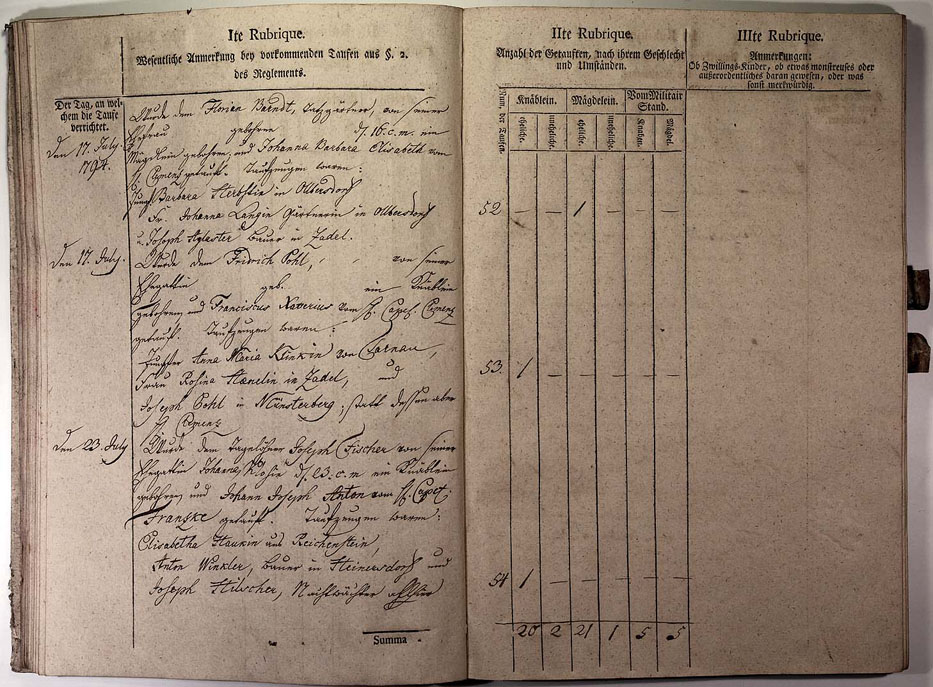 Ite Rubrique.
Wesentliche Anmerkung bey vorkommenden Taufen aus §. 2.
des Reglements.
Der Tag, an wel-
chem die Taufe
verrichtet.
Den 17. July
1794.
Wurde dem Florian Barndt, von seiner
Ehefrau gebohren d. 16. c. m. ein
Mägdlein gebohren, und Johanna Barbara Elisabeth vom
getauft. Taufzeugen waren:
Barbara Herbstin in Olbersdorf
Fr. Johanna Langin Gärtnerin in Olbersdorf
u. Joseph Bauer in Zadel.
Den 17. July.
Wurde dem Fridrich Pohl, von seiner
Ehegattin geb. ein Knäblein
gebohren und Franciscus Xaverius vom H. Capel. Camenz
getauft. Taufzeugen waren:
Jungfer Anna Maria Klinkin von Tarnau,
Frau Rosina Hænelin in Zadel, und
Joseph Pohl in Münsterberg, statt dessen aber
Den 23. July
Wurde dem Tagelöhner Joseph Fischer von seiner
Ehegattin Johanna d. 23. c. m ein Knäblein
gebohren und Johann Joseph Anton vom H. Capel.
Franzke getauft. Taufzeugen waren:
Elisabetha Haukin aus Reichenstein,
Anton Winkler, Bauer in Heinersdorf und
Joseph Hilscher, Nachtwächter allhier
Summa
IIte Rubrique.
Anzahl der Getauften, nach ihrem Geschlecht
und Umständen.
Num. der Taufen.
Knäblein.
Mägdelein.
Vom Militair
Stand.
eheliche.
uneheliche.
eheliche.
uneheliche.
Knaben.
Mägdel.
52 — — 1 — — —
53. 1 — — — — —
54 1 — — — — —
20 2 21 1 5 5
IIIte Rubrique.
Anmerkungen:
Ob Zwillings-Kinder, ob etwas monstreuses oder
außerordentliches daran gewesen, oder was
sonst merkwürdig.